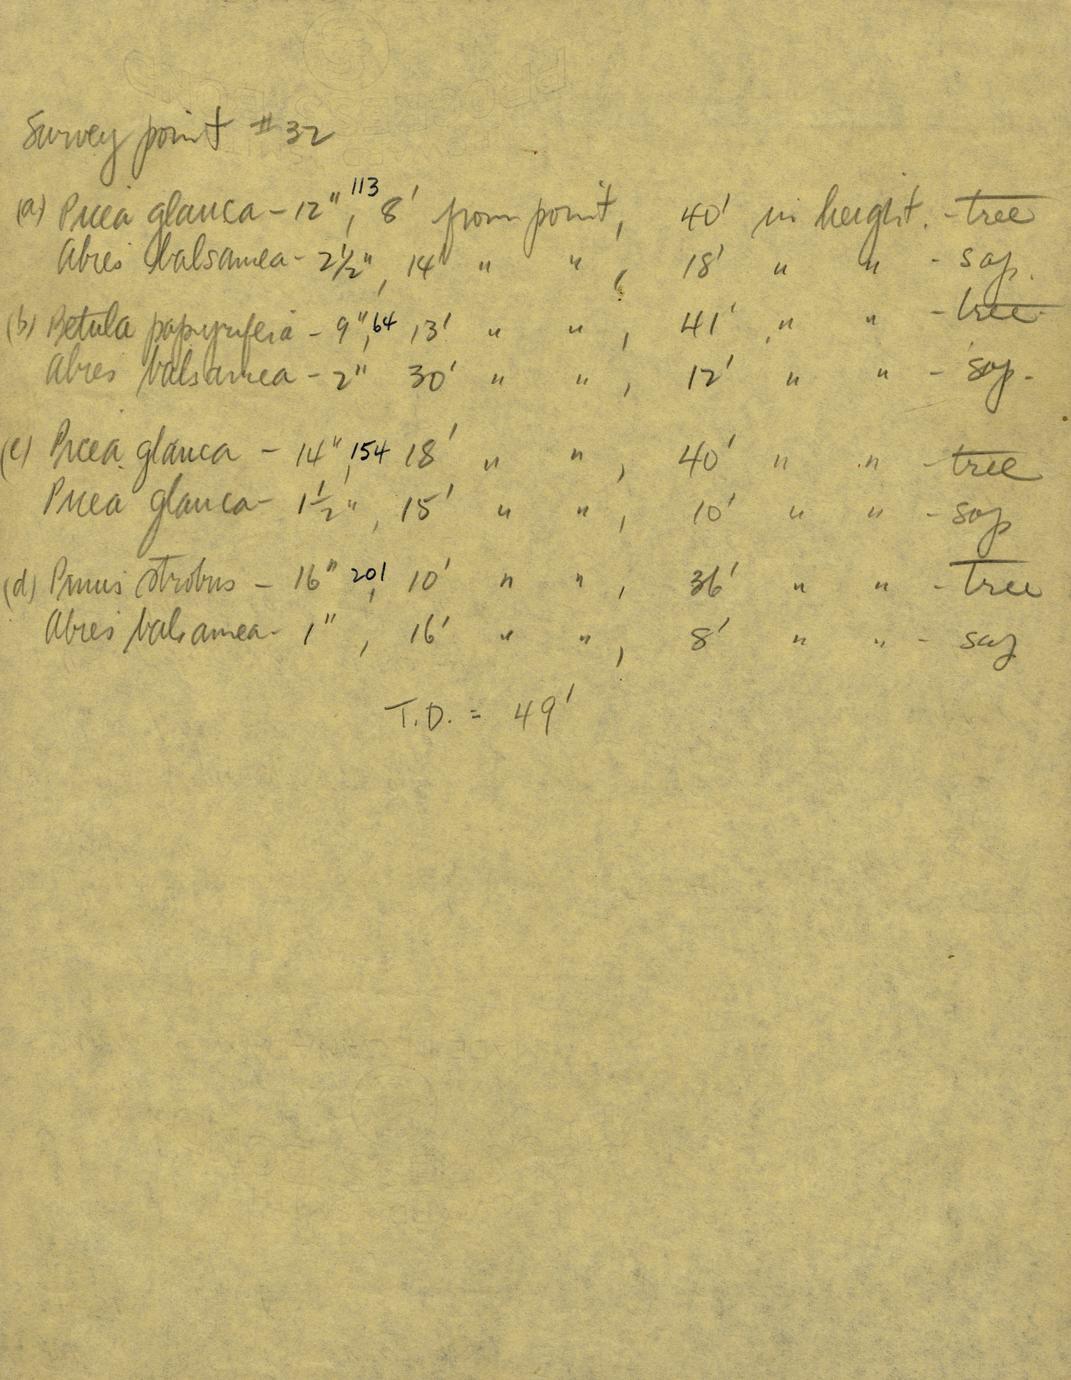 Survey point #32
(a) Picea glauca - 12", 113 8' from point, 40' in height. - tree
Abies balsamea - 2 1/2", 14' " " , 18' " " - sap.
(b) Betula papyrifera - 9", 64 13' " " , 41' " " - tree
Abies balsamea - 2" 30' " " , 12' " " - sap.
(c) Picea glauca - 14", 154 18' " " , 40' " " - tree
Picea glauca - 1 1/2", 15' " " , 10' " " - sap
(d) Pinus strobus - 16", 201 10' " " , 36' " " - tree
Abies balsamea - 1", 16' " " , 8' " " - sap
T.D. = 49'